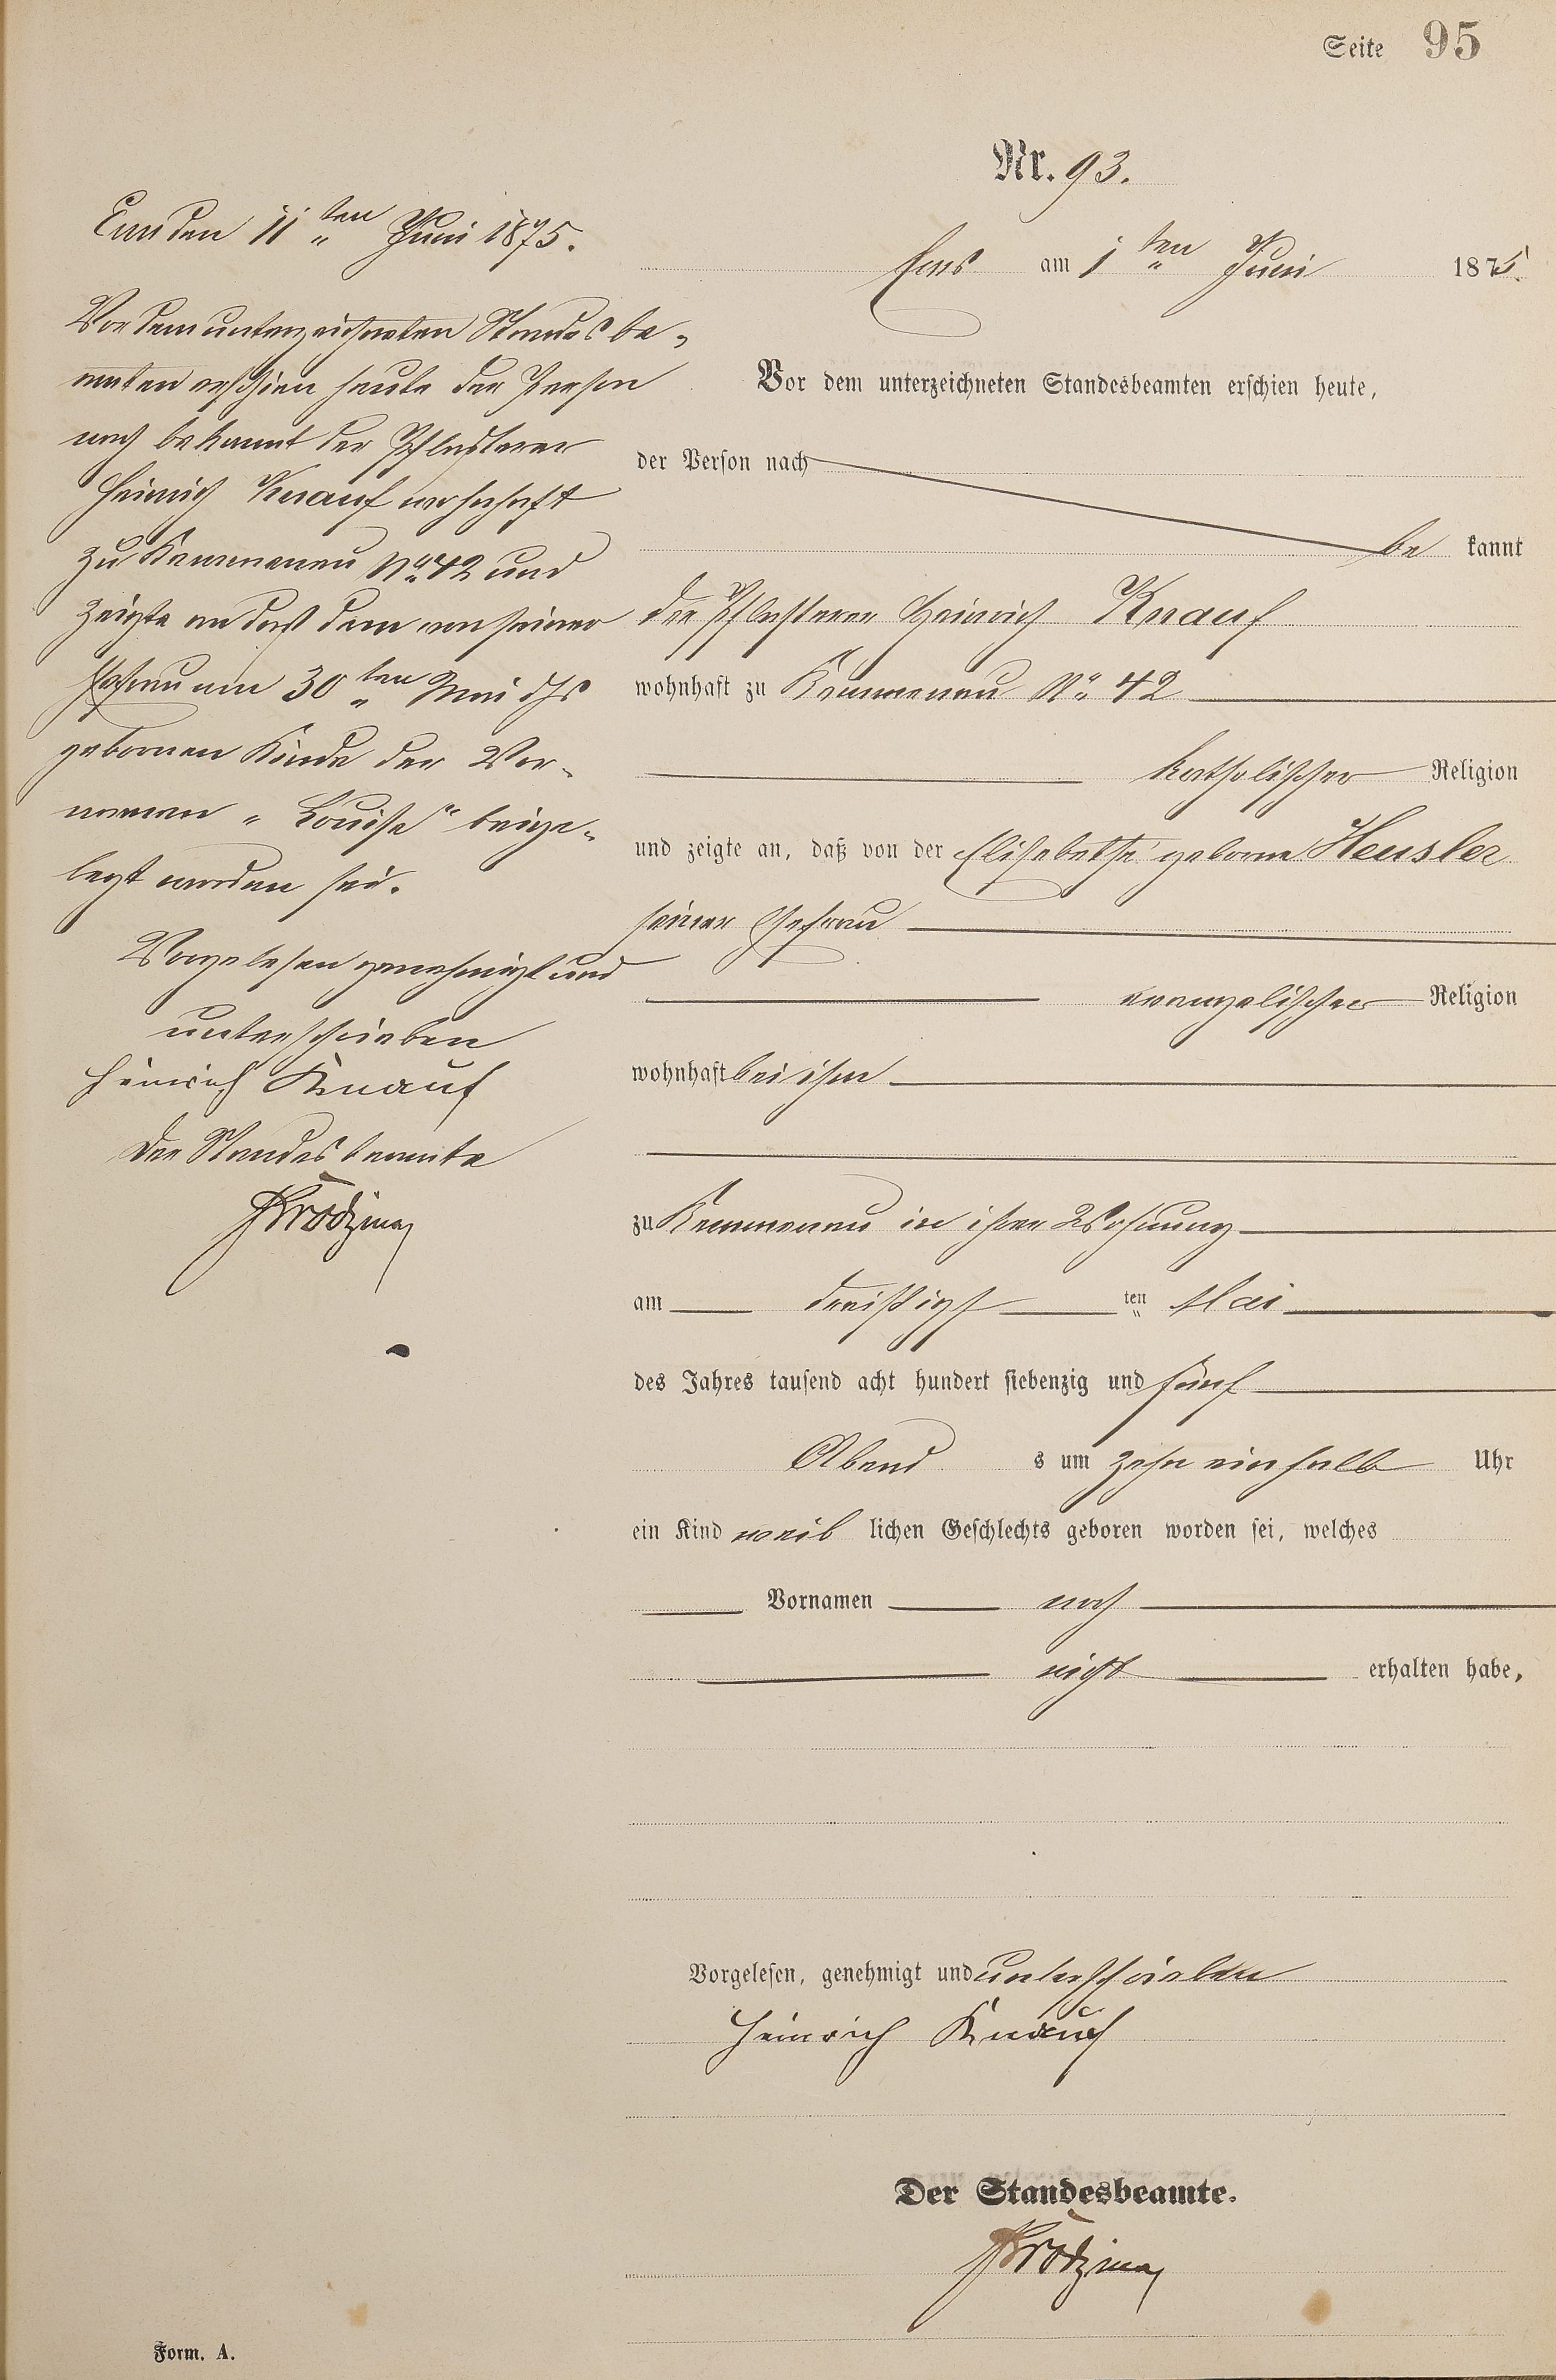 Seite 95
Nr. 93.
Ems den 11ten Juni 1875.
Vor dem unterzeichneten Standesbe-
amten erschien heute der Person
nach bekannt der Pflasterer
Heinrich Knauf wohnhaft
zu Kemmenau No 42 und
zeigte an daß dem von seiner
Ehefrau am 30ten Mai ds Js
gebornen Kinde der Vor-
namen „Louise“ beige-
legt worden sei.
Vorgelesen genehmigt und
unterschrieben
Heinrich Knauf
Der Standesbeamte
Ems am 1ten Juni 1875.
Vor dem unterzeichneten Standesbeamten erschien heute,
der Person nach
be kannt
der Pflasterer Heinrich Knauf
wohnhaft zu Kemmenau No 42
katholischer Religion
und zeigte an, daß von der Elisabetha geborne Heusler
seiner Ehefrau
evangelischer Religion
wohnhaft bei ihm
zu Kemmenau in ihrer Wohnung
am dreißigsten Mai
des Jahres tausend acht hundert siebenzig und fünf
Abend s um zehn einhalb Uhr
ein Kind weib lichen Geschlechts geboren worden sei, welches
Vornamen noch
nicht erhalten habe,
Vorgelesen, genehmigt und unterschrieben
Heinrich Knauf
Der Standesbeamte.
Form. A.